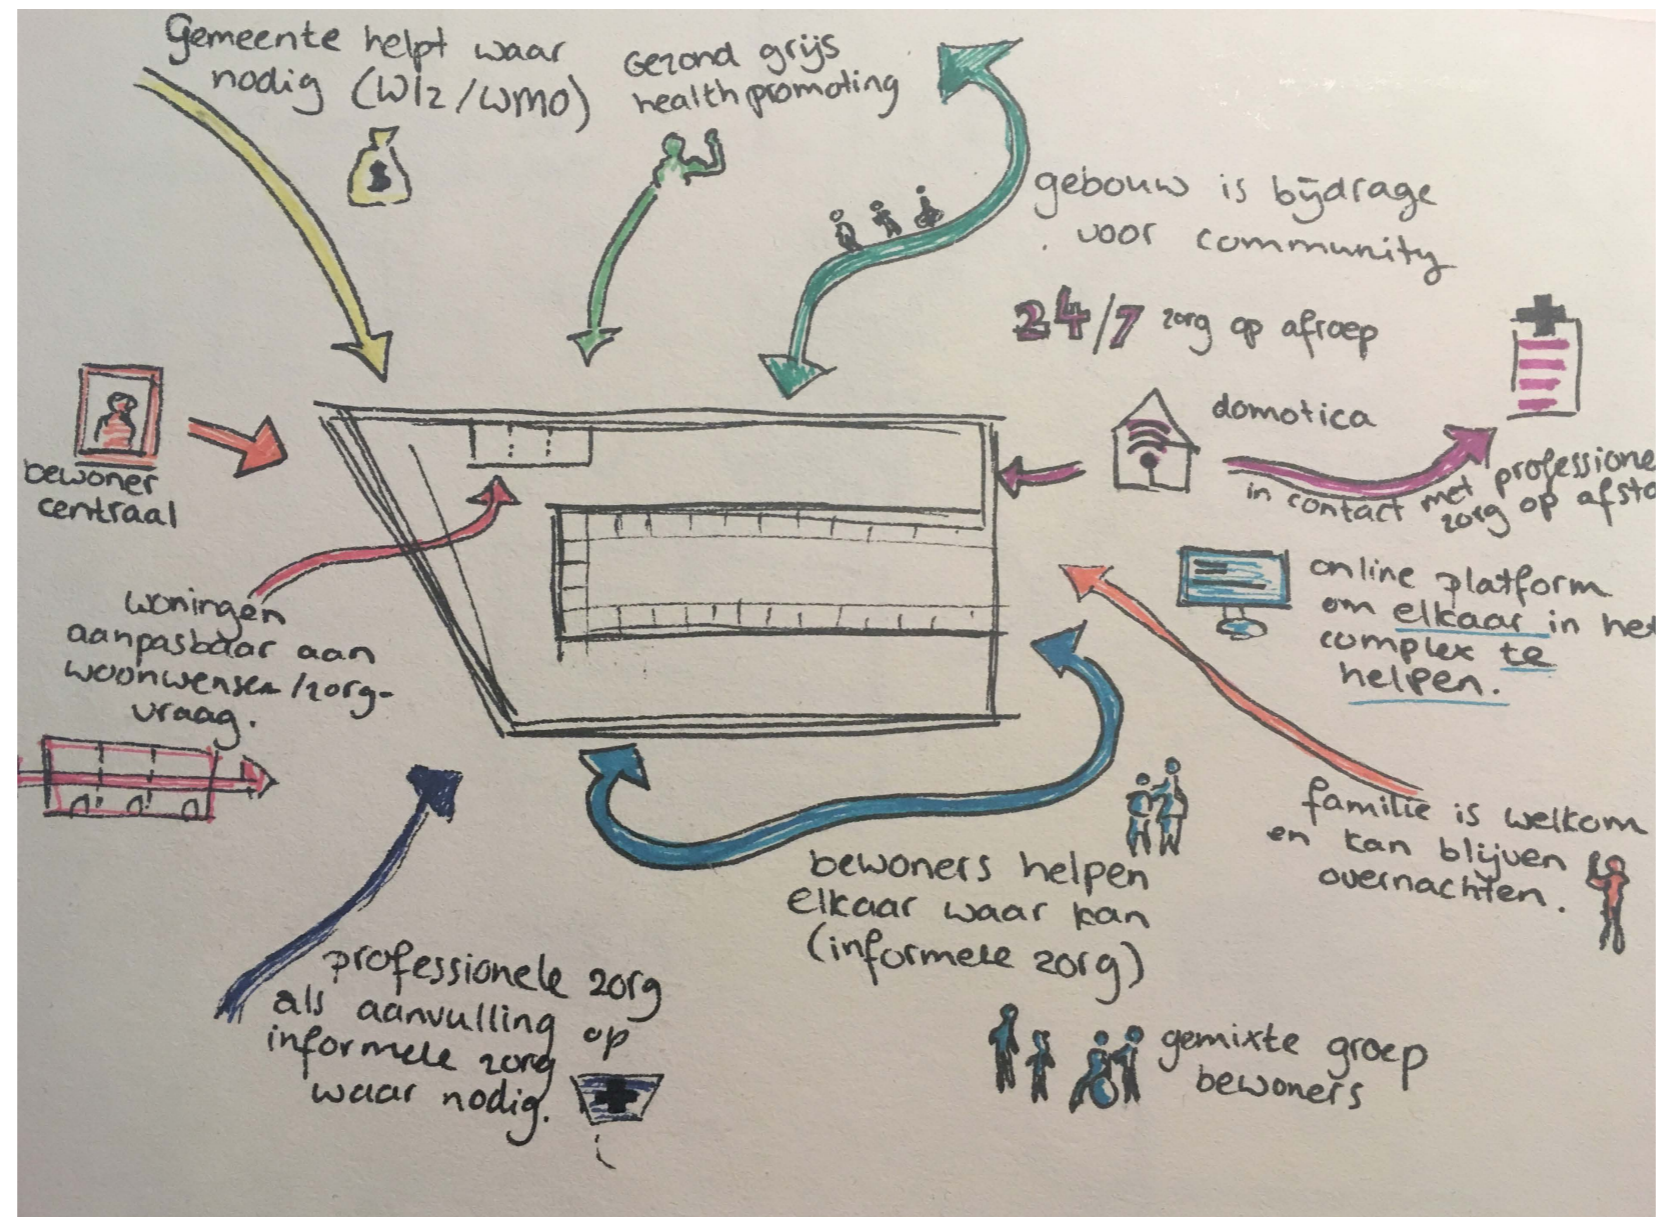 Gemeente helpt waar
nodig (Wlz/WMO)
$
Gezond grijs
healthpromoting
gebouw is bijdrage
voor community
24/7 zorg op afroep
domotica
in contact met professione
zorg op afsta
bewoner
centraal
online platform
om elkaar in het
complex te
helpen.
woningen
aanpasbaar aan
woonwensen/zorg-
vraag.
familie is welkom
en kan blijven
overnachten.
bewoners helpen
elkaar waar kan
(informele zorg)
professionele zorg
als aanvulling op
informele zorg
waar nodig.
gemixte groep
bewoners